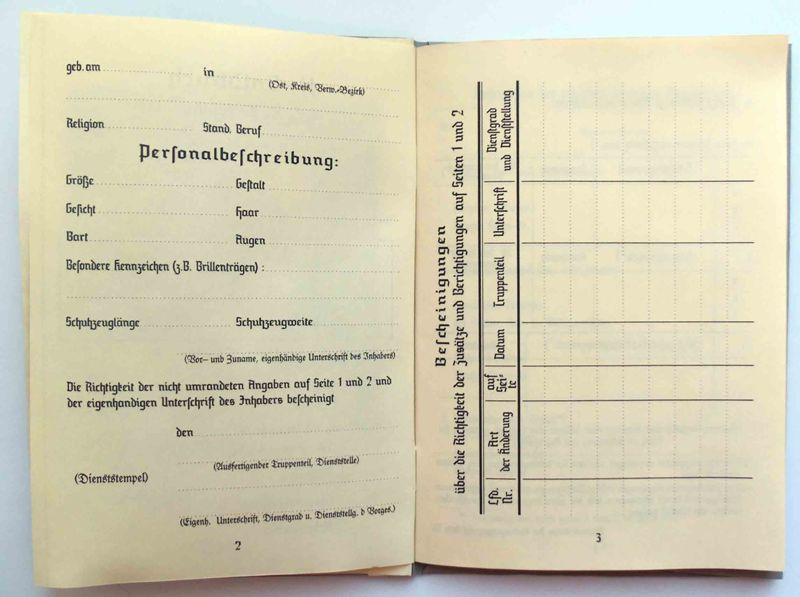 geb. am in
(Ost, Kreis, Verw.-Bezirk)
Religion Stand. Beruf
Personalbeschreibung:
Größe Gestalt
Gesicht Haar
Bart Augen
Besondere Kennzeichen (z.B. Brillenträgen) :
Schuhzeuglänge Schuhzeugweite
(Vor- und Zuname, eigenhändige Unterschrift des Inhabers)
Die Richtigkeit der nicht umrandeten Angaben auf Seite 1 und 2 und
der eigenhandigen Unterschrift des Inhabers bescheinigt
den
(Ausfertigender Truppenteil, Dienststelle)
(Dienststempel)
(Eigenh. Unterschrift, Dienstgrad u. Dienststellg. d Vorges.)
2
Bescheinigungen
über die Richtigkeit der Zusätze und Berichtigungen auf Seiten 1 und 2
Lfd. Nr.
Art der Änderung
auf Sei= te
Datum
Truppenteil
Unterschrift
Dienstgrad und Dienststellung
3